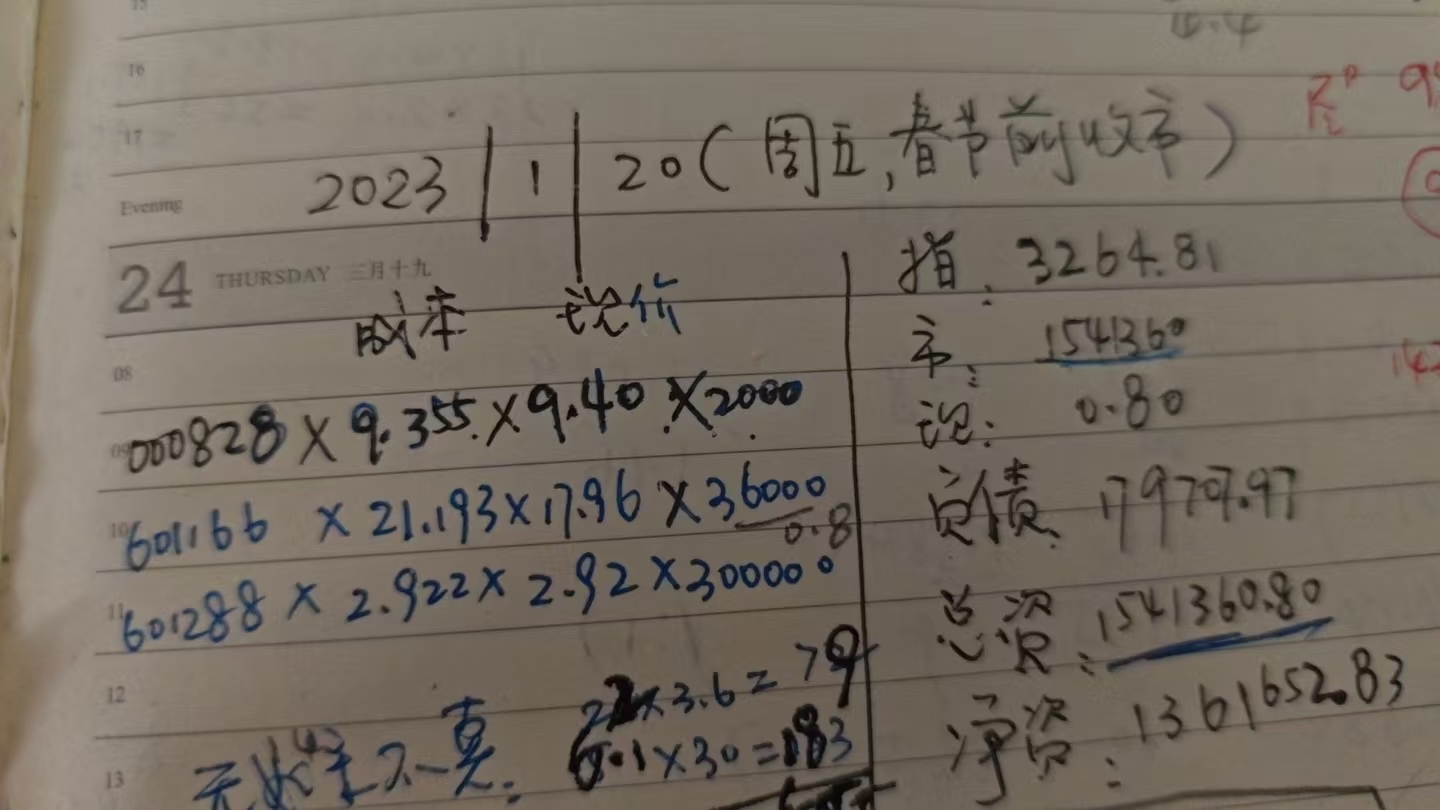 15
4.4
16
17
2023 | 1 | 20（周五，春节前收市）
Evening
24 THURSDAY 三月十九
成本 现价
08
000828 × 9.355 × 9.40 × 2000
09
10
601166 × 21.193 × 17.96 × 36000
0.8
11
601288 × 2.922 × 2.92 × 300000
12
22×3.6=79
13
6.1×30=183
指：3264.81
市：1541360
现：0.80
负债：179707.97
总资：1541360.80
净资：1361652.83